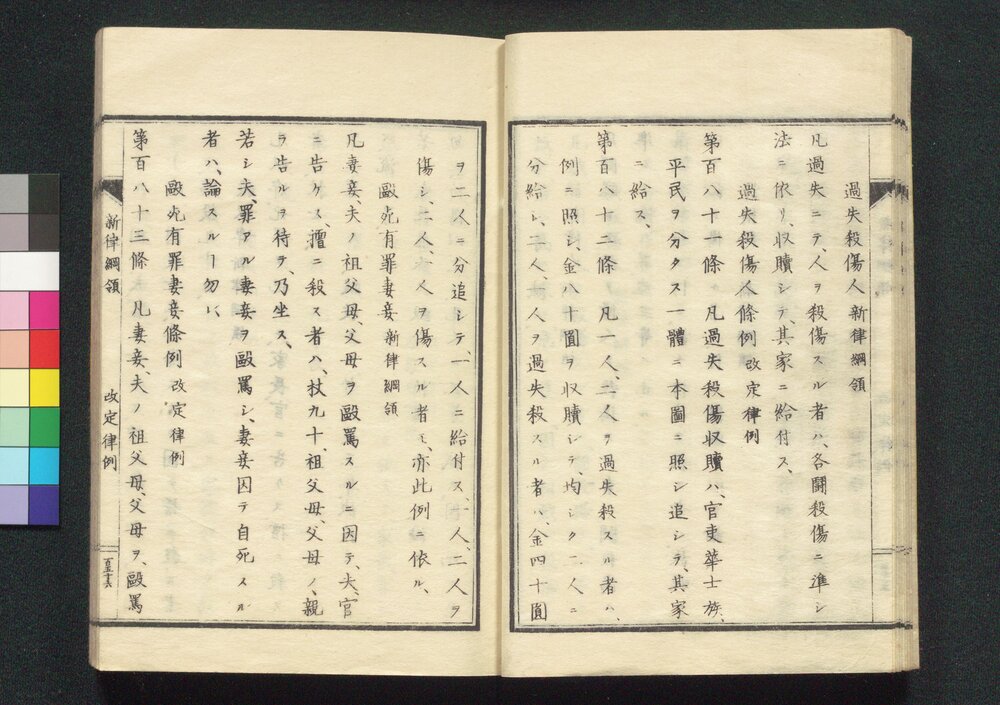 過失殺傷人 新律綱領
凡過失ニテ、人ヲ殺傷スル者ハ、各鬪殺傷ニ準シ
法ニ依リ、収贖シテ、其家ニ給付ス、
過失殺傷人條例 改定律例
第百八十一條 凡過失殺傷収贖ハ、官吏華士族、
平民ヲ分タス一體ニ本圖ニ照シ追シテ、其家
ニ給ス、
第百八十二條 凡一人、二人ヲ過失殺スル者ハ、
例ニ照シ、金八十圓ヲ収贖シテ、均シク二人ニ
分給シ、二人、一人ヲ過失殺スル者ハ、金四十圓
ヲ二人ニ分追シテ、一人ニ給付ス、一人、二人ヲ
傷シ、二人、一人ヲ傷スル者モ、亦此例ニ依ル、
毆死有罪妻妾 新律綱領
凡妻妾、夫ノ祖父母、父母ヲ毆罵スルニ因テ、夫、官
ニ告ケス、擅ニ殺ス者ハ、杖九十、祖父母、父母ノ、親
ラ告ルヲ待テ、乃坐ス、
若シ夫、罪アル妻妾ヲ毆罵シ、妻妾因テ自死スル
者ハ、論スルヿ勿レ、
毆死有罪妻妾條例 改定律例
第百八十三條 凡妻妾、夫ノ祖父母、父母ヲ、毆罵
新律綱領 改定律例 百五十六